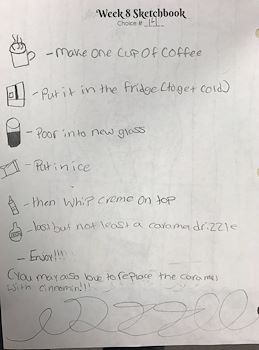 Week 8 Sketchbook
Choice # 14
- Make one cup of coffee
- Put it in the fridge (to get cold)
- Poor into new glass
- Put in ice
- then whip creme on top
- last but not least a caramel drizzle
- Enjoy!!!!
(You may also love to replace the caramel
with cinnomin!!!